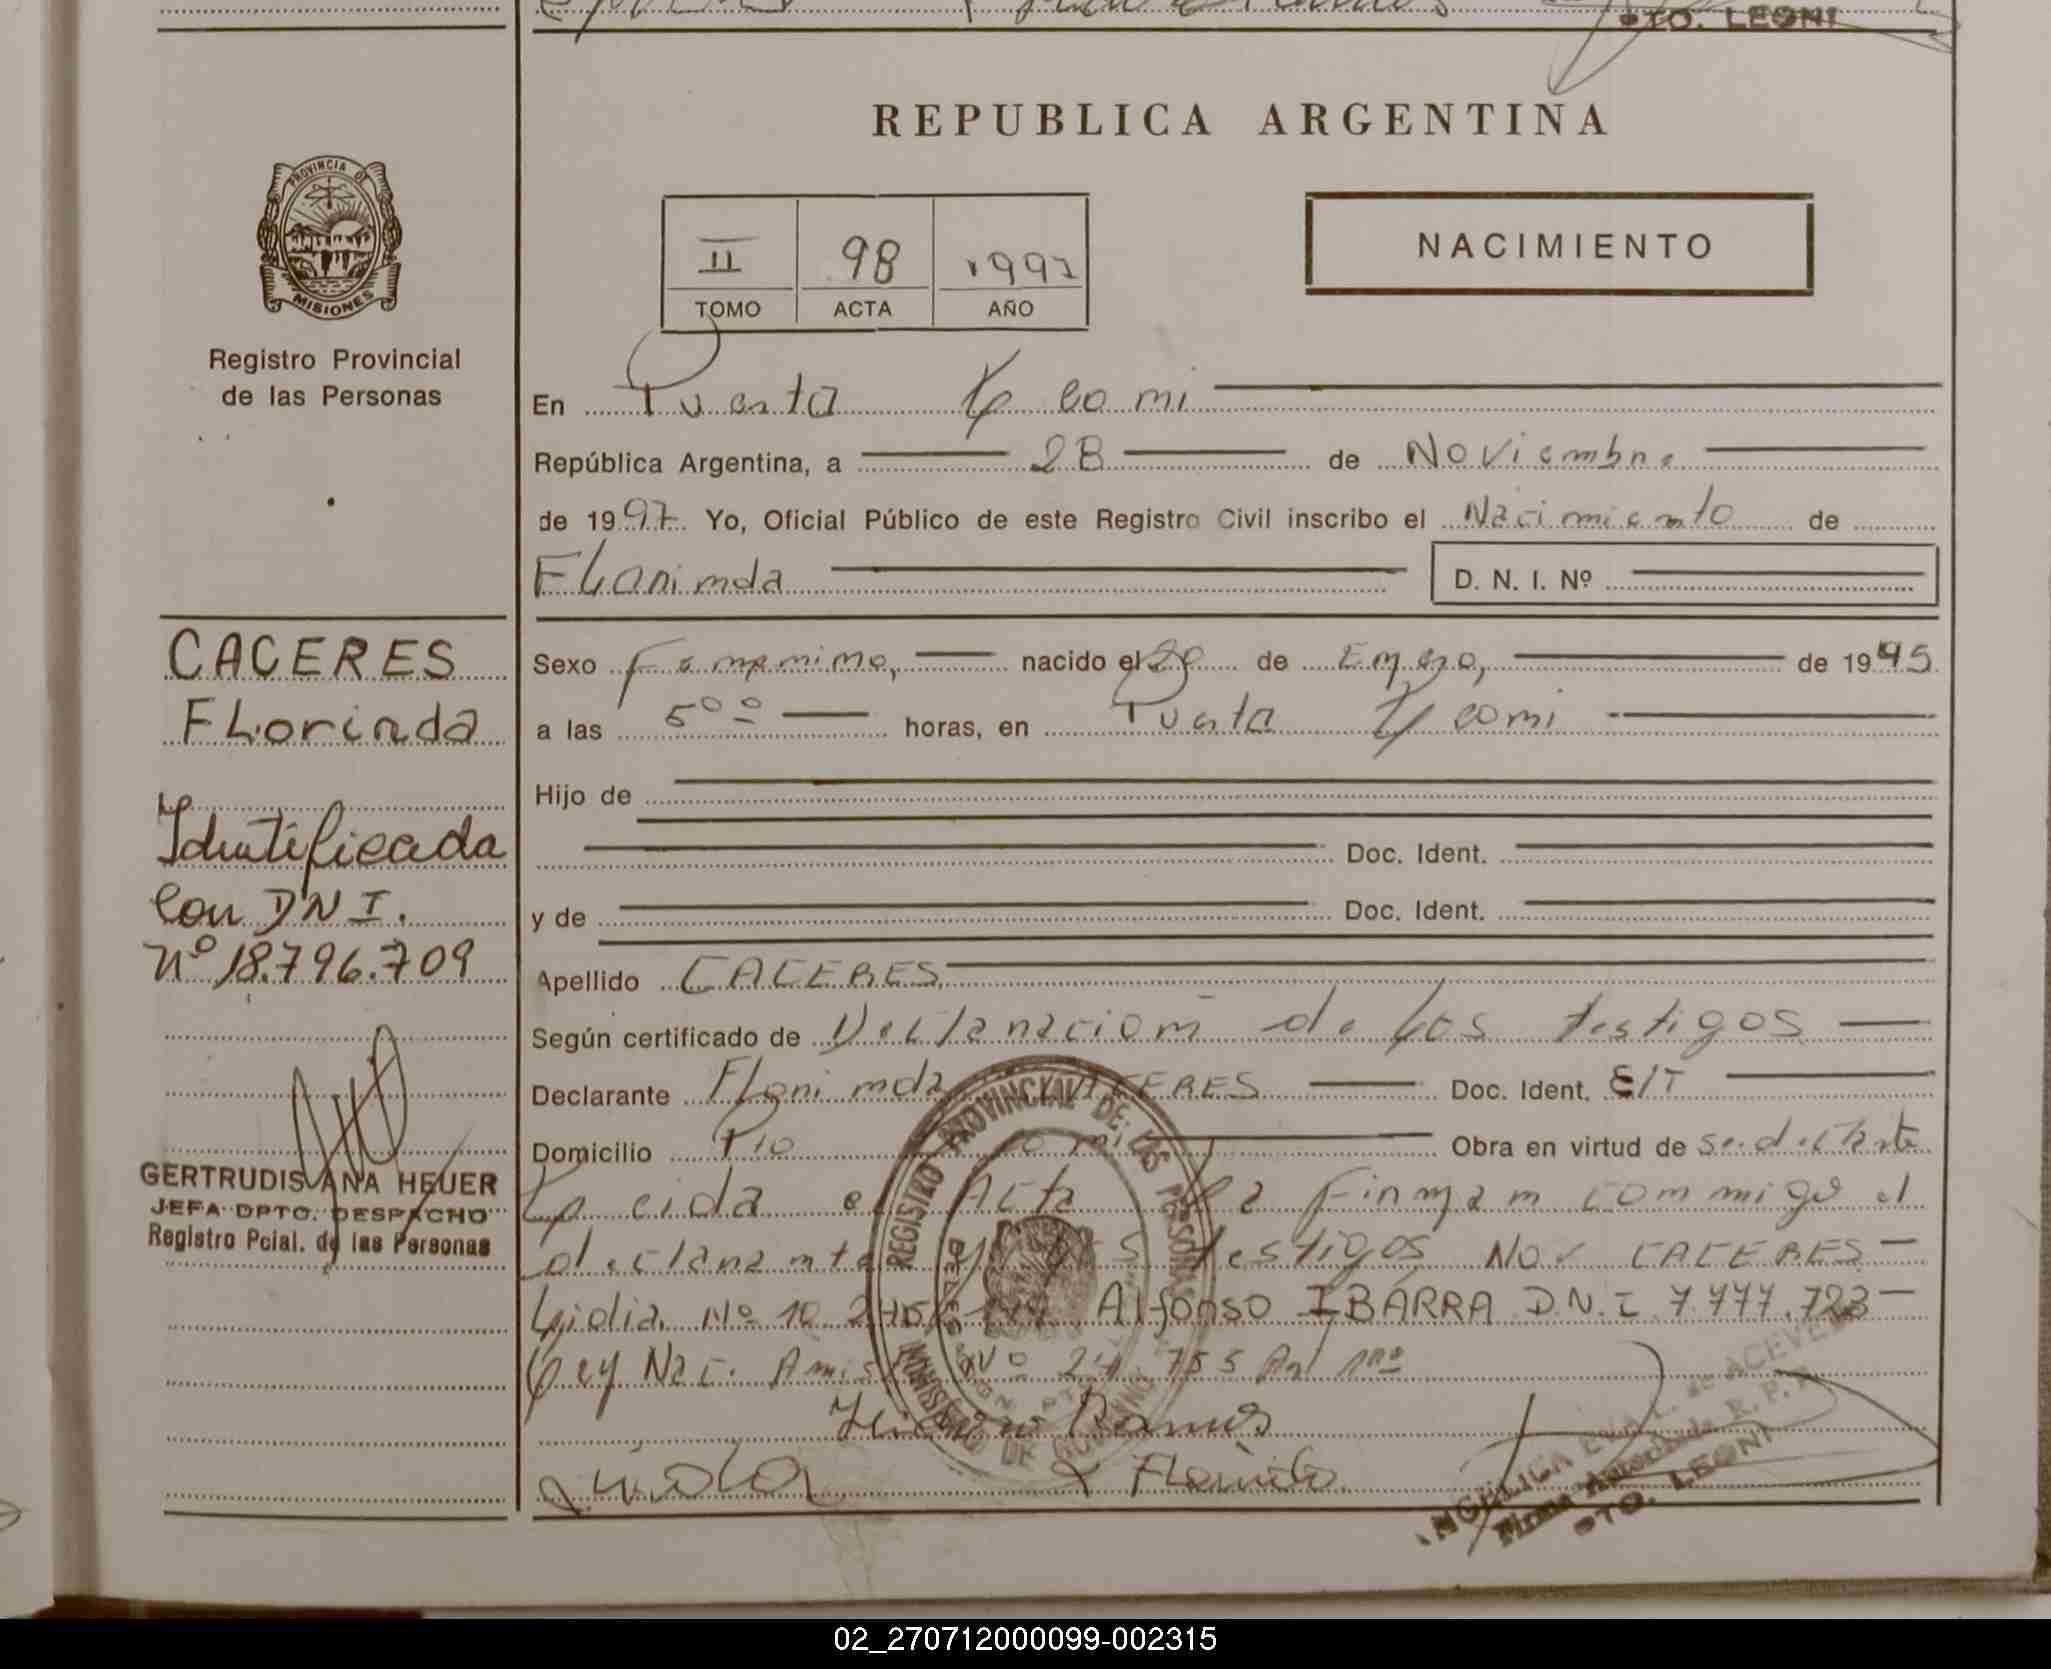 PTO. LEONI
REPUBLICA ARGENTINA
PROVINCIA DE
MISIONES
Registro Provincial
de las Personas
II 98 1997
TOMO ACTA AÑO
NACIMIENTO
En Puerto Leoni
República Argentina, a 28 de Noviembre
de 1997 Yo, Oficial Público de este Registro Civil inscribo el Nacimiento de
Florinda D. N. I. Nº
CACERES
Florinda
Identificada
Con DNI.
Nº 18.796.709
GERTRUDIS ANA HEUER
JEFA DPTO. DESPACHO
Registro Pcial. de las Personas
Sexo Femenino, nacido el 20 de Enero, de 1945
a las 5ºº horas, en Puerto Leoni
Hijo de
Doc. Ident.
y de Doc. Ident.
Apellido CACERES
Según certificado de Declaracion de los testigos
Declarante Florinda CACERES Doc. Ident. S/T
Domicilio Pto Leoni Obra en virtud de ser declarante
Leida el Acta la Firman conmigo el
declarante y los testigos CACERES
Lidia Nº 10 Alfonso IBARRA D.N.I 7.777.723
Ley Nac. Nº 24.755 Art 1ºº
REGISTRO PROVINCIAL DE LAS PERSONAS
MINISTERIO DE GOBIERNO
Ramos
Florinda
ANGELICA de ACEVEDO
Firma Autorizada R. P. P.
PTO. LEONI
02_270712000099-002315